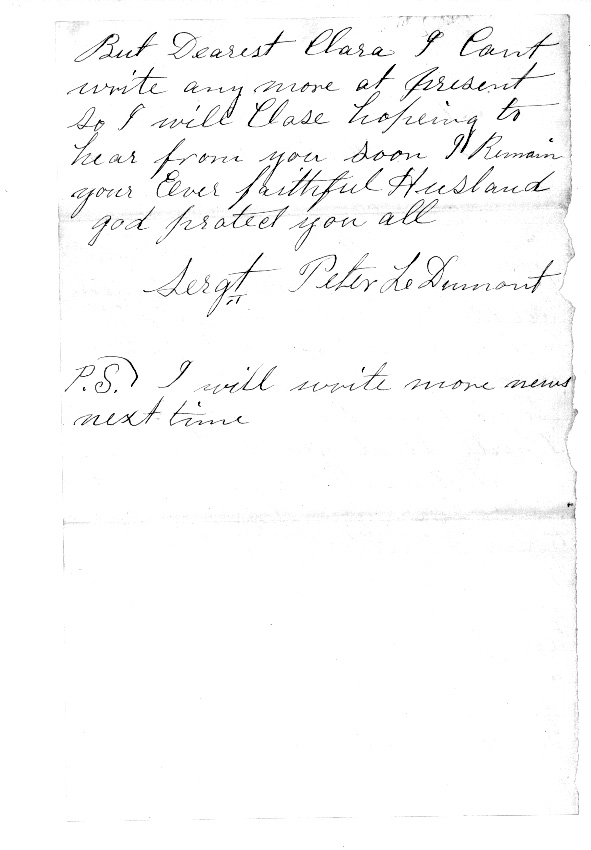 But Dearest Clara I Cant
write any more at present
so I will Close hopeing to
hear from you soon I Remain
your Ever faithful Husband
god protect you all
Sergt Peter Le Dumont
P.S.) I will write more news
next time